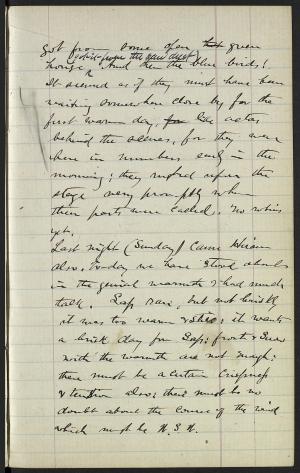 got from some open that green
house. And then the blue birds!
It seemed as if they must have been
waiting somewhere close by for the
first warm day, for like actors
behind the scenes, for they were
here in numbers early in the
morning; they rushed upon the
stage very promptly when
their parts were called. No robins
yet.
Last night (Sunday) came Hiram
also. To-day we have stood about
in the genial warmth & had much
talk. Sap ran, but not briskly,
it was too warm & still; it wants
a brisk day for Sap; frost & sun
with the warmth are not enough;
there must be a certain crispness
& tension also; there must be no
doubt about the course of the wind
which must be N.